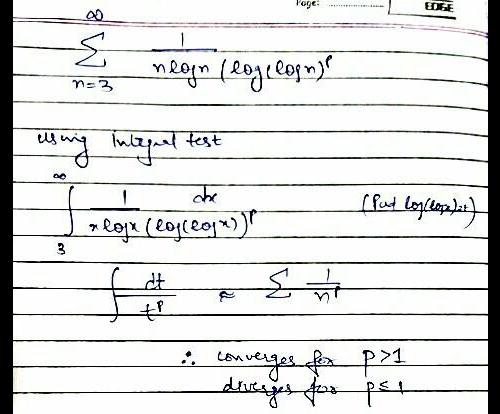 Page: ..............
EDGE
∞
∑ 1 / n log n (log(log n)^p
n=3
using integral test
∞
∫ 1 dx / x log x (log(log x))^p (Put log(log x)=t)
3
∫ dt / t^p ≈ ∑ 1 / n^p
∴ converges for p>1
diverges for p≤1